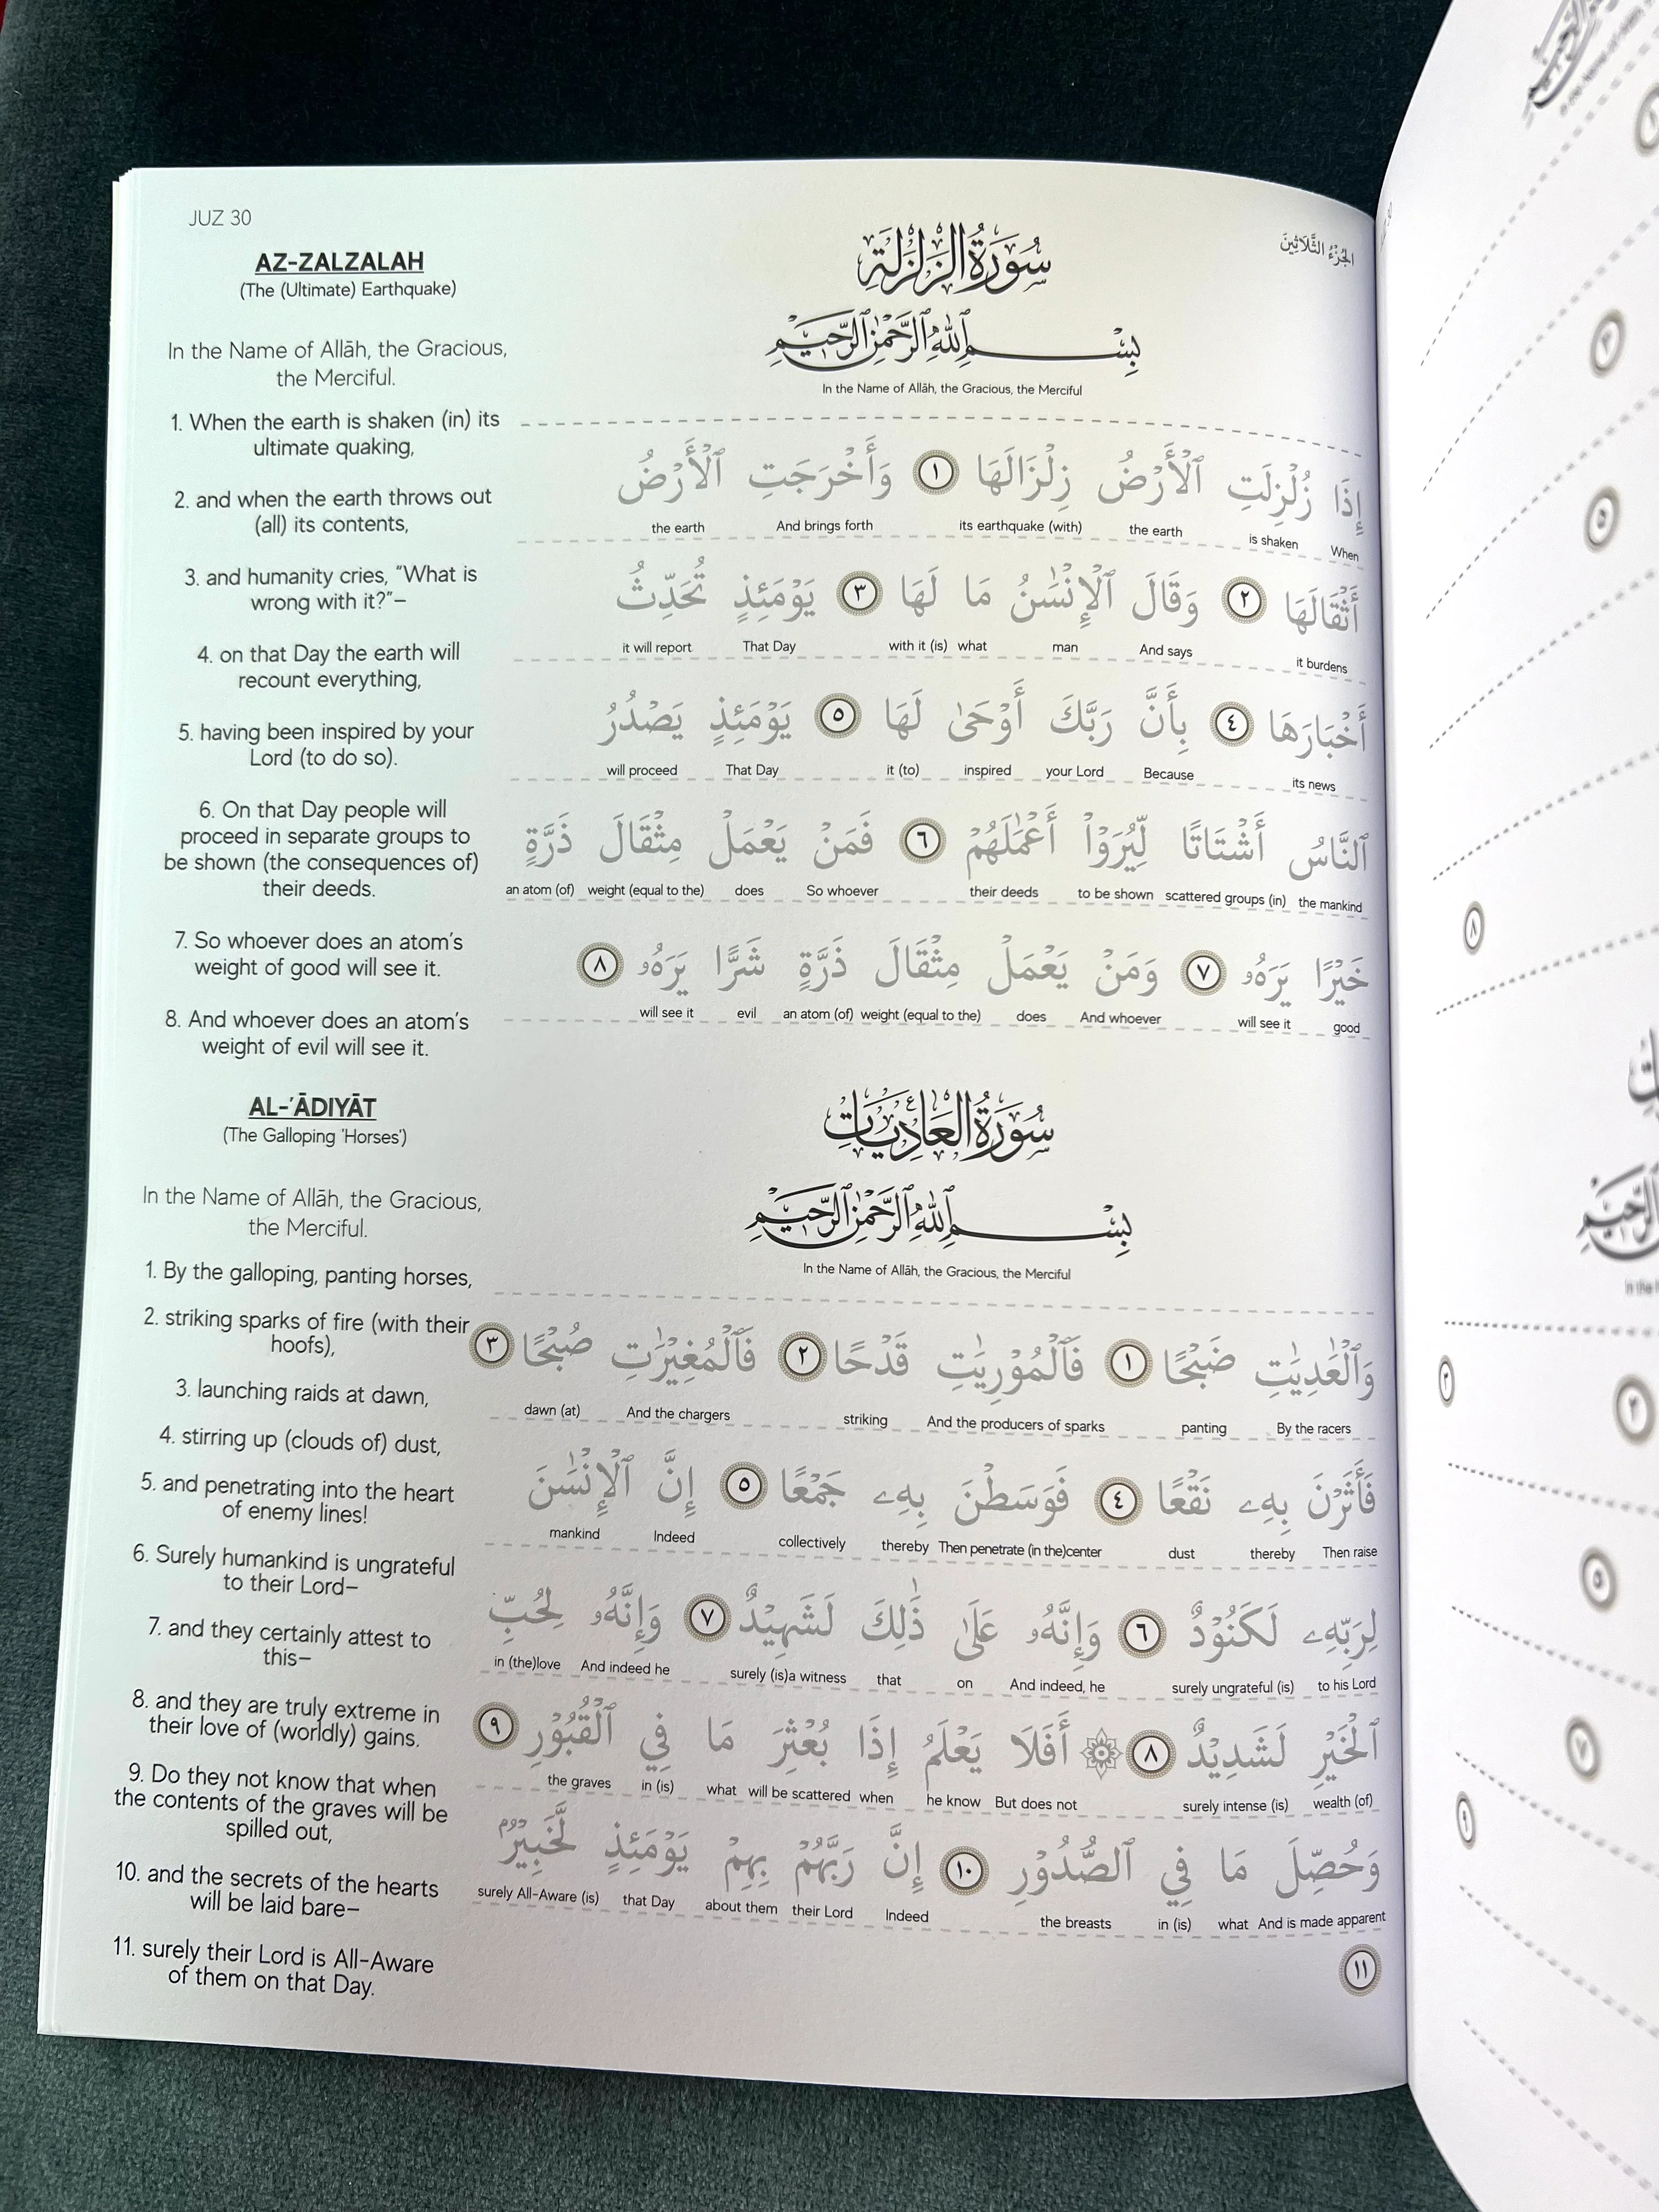 JUZ 30
الجُزْءُ الثَّلَاثِينَ
AZ-ZALZALAH
(The (Ultimate) Earthquake)
In the Name of Allāh, the Gracious,
the Merciful.
1. When the earth is shaken (in) its
ultimate quaking,
2. and when the earth throws out
(all) its contents,
3. and humanity cries, “What is
wrong with it?”–
4. on that Day the earth will
recount everything,
5. having been inspired by your
Lord (to do so).
6. On that Day people will
proceed in separate groups to
be shown (the consequences of)
their deeds.
7. So whoever does an atom’s
weight of good will see it.
8. And whoever does an atom’s
weight of evil will see it.
سُورَةُ الزَّلْزَلَة
بِسْمِ ٱللَّهِ ٱلرَّحْمَٰنِ ٱلرَّحِيمِ
In the Name of Allāh, the Gracious, the Merciful
إِذَا زُلْزِلَتِ ٱلْأَرْضُ زِلْزَالَهَا ١ وَأَخْرَجَتِ ٱلْأَرْضُ
the earth And brings forth its earthquake (with) the earth is shaken When
أَثْقَالَهَا ٢ وَقَالَ ٱلْإِنْسَٰنُ مَا لَهَا ٣ يَوْمَئِذٍ تُحَدِّثُ
it will report That Day with it (is) what man And says it burdens
أَخْبَارَهَا ٤ بِأَنَّ رَبَّكَ أَوْحَىٰ لَهَا ٥ يَوْمَئِذٍ يَصْدُرُ
will proceed That Day it (to) inspired your Lord Because its news
ٱلنَّاسُ أَشْتَاتًا لِّيُرَوْا۟ أَعْمَٰلَهُمْ ٦ فَمَنْ يَعْمَلْ مِثْقَالَ ذَرَّةٍ
an atom (of) weight (equal to the) does So whoever their deeds to be shown scattered groups (in) the mankind
خَيْرًا يَرَهُۥ ٧ وَمَنْ يَعْمَلْ مِثْقَالَ ذَرَّةٍ شَرًّا يَرَهُۥ ٨
will see it evil an atom (of) weight (equal to the) does And whoever will see it good
AL-ʿĀDIYĀT
(The Galloping ‘Horses’)
In the Name of Allāh, the Gracious,
the Merciful.
1. By the galloping, panting horses,
2. striking sparks of fire (with their
hoofs),
3. launching raids at dawn,
4. stirring up (clouds of) dust,
5. and penetrating into the heart
of enemy lines!
6. Surely humankind is ungrateful
to their Lord–
7. and they certainly attest to
this–
8. and they are truly extreme in
their love of (worldly) gains.
9. Do they not know that when
the contents of the graves will be
spilled out,
10. and the secrets of the hearts
will be laid bare–
11. surely their Lord is All-Aware
of them on that Day.
سُورَةُ العَادِيَات
بِسْمِ ٱللَّهِ ٱلرَّحْمَٰنِ ٱلرَّحِيمِ
In the Name of Allāh, the Gracious, the Merciful
وَٱلْعَٰدِيَٰتِ ضَبْحًا ١ فَٱلْمُوْرِيَٰتِ قَدْحًا ٢ فَٱلْمُغِيْرَٰتِ صُبْحًا ٣
dawn (at) And the chargers striking And the producers of sparks panting By the racers
فَأَثَرْنَ بِهِۦ نَقْعًا ٤ فَوَسَطْنَ بِهِۦ جَمْعًا ٥ إِنَّ ٱلْإِنْسَٰنَ
mankind Indeed collectively thereby Then penetrate (in the)center dust thereby Then raise
لِرَبِّهِۦ لَكَنُوْدٌ ٦ وَإِنَّهُۥ عَلَىٰ ذَٰلِكَ لَشَهِيْدٌ ٧ وَإِنَّهُۥ لِحُبِّ
in (the)love And indeed he surely (is)a witness that on And indeed, he surely ungrateful (is) to his Lord
ٱلْخَيْرِ لَشَدِيْدٌ ٨ ۞ أَفَلَا يَعْلَمُ إِذَا بُعْثِرَ مَا فِي ٱلْقُبُوْرِ ٩
the graves in (is) what will be scattered when he know But does not surely intense (is) wealth (of)
وَحُصِّلَ مَا فِي ٱلصُّدُوْرِ ١٠ إِنَّ رَبَّهُمْ بِهِمْ يَوْمَئِذٍ لَّخَبِيْرٌۢ
surely All-Aware (is) that Day about them their Lord Indeed the breasts in (is) what And is made apparent
١١